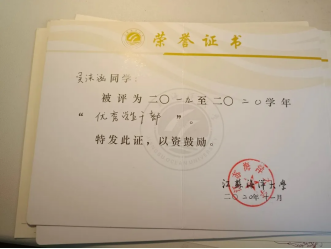 荣誉证书
吴沐涵同学：
被评为二〇一九至二〇二〇学年
“优秀学生干部”。
特发此证，以资鼓励。
江苏海洋大学
二〇二〇年十一月